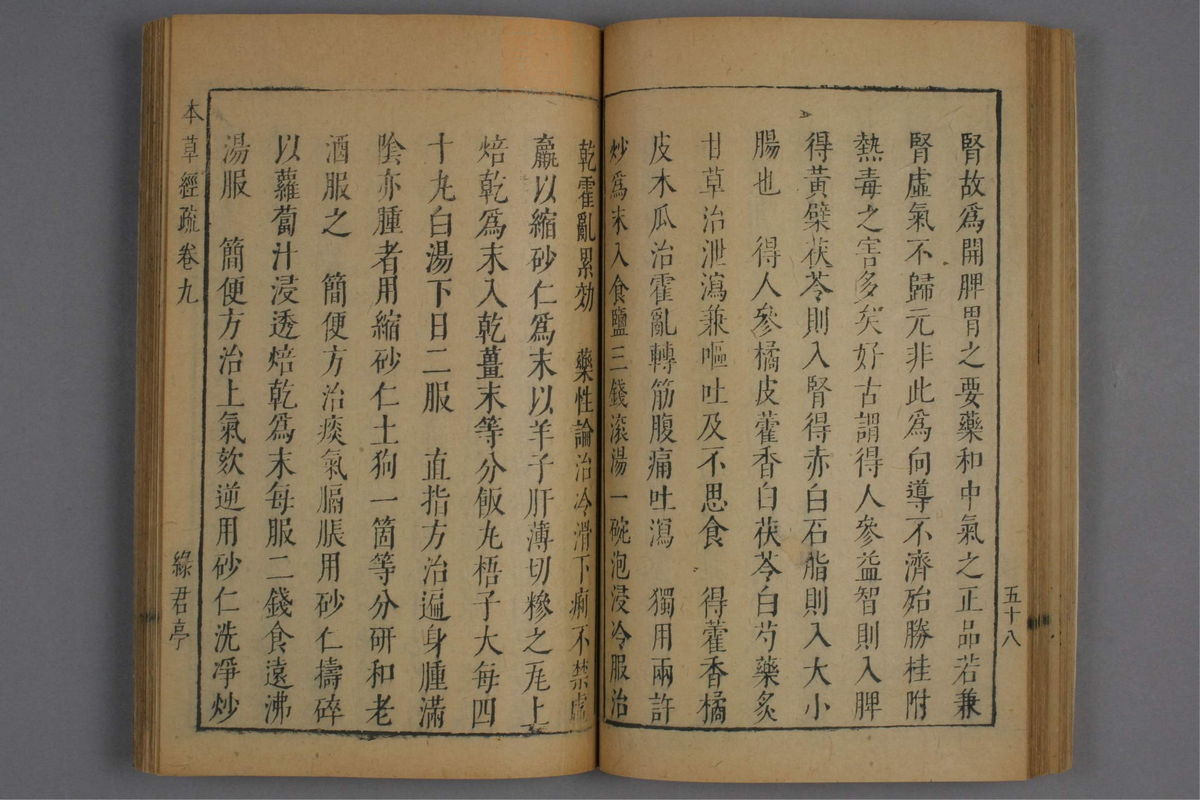 五十八
腎故爲開脾胃之要藥和中氣之正品若兼
腎虛氣不歸元非此爲向導不濟殆勝桂附
熱毒之害多矣好古謂得人參益智則入脾
得黃檗茯苓則入腎得赤白石脂則入大小
腸也　得人參橘皮藿香白茯苓白芍藥炙
甘草治泄瀉兼嘔吐及不思食　得藿香橘
皮木瓜治霍亂轉筋腹痛吐瀉　獨用兩許
炒爲末入食鹽三錢滾湯一碗泡浸冷服治
乾霍亂累効　藥性論治冷滑下痢不禁虛
羸以縮砂仁爲末以羊子肝薄切糝之瓦上
焙乾爲末入乾薑末等分飯丸梧子大每四
十丸白湯下日二服　直指方治遍身腫滿
陰亦腫者用縮砂仁土狗一箇等分研和老
酒服之　簡便方治痰氣膈脹用砂仁擣碎
以蘿蔔汁浸透焙乾爲末每服二錢食遠沸
湯服　簡便方治上氣欬逆用砂仁洗淨炒
本草經疏卷九　綠君亭